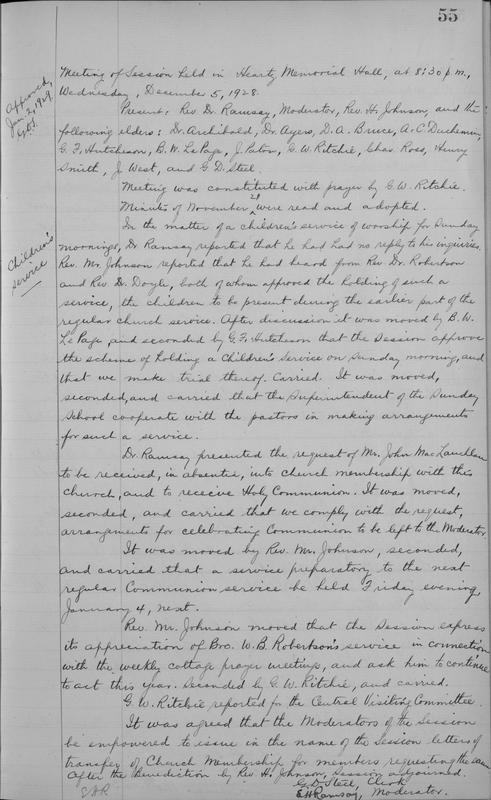 55
Approved,
Jan. 2, 1929.
Meeting of Session held in Heartz Memorial Hall, at 8:30 p.m.,
Wednesday, December 5, 1928.
Present: Rev. Dr. Ramsay, Moderator, Rev. H. Johnson, and the
following elders: Dr. Archibald, Dr. Ayers, D. A. Bruce, A. C. Duchemin,
G. F. Hutcheson, B. W. LePage, J. Paton, G. W. Ritchie, Chas. Ross, Henry
Smith, J. West, and G. D. Steel.
Meeting was constituted with prayer by G. W. Ritchie.
Minutes of November 28 were read and adopted.
Children's
service
In the matter of a children's service of worship for Sunday
mornings, Dr. Ramsay reported that he had had no reply to his inquiries.
Rev. Mr. Johnson reported that he had heard from Rev. Dr. Robertson
and Rev. Dr. Doyle, both of whom approved the holding of such a
service, the children to be present during the earlier part of the
regular church service. After discussion it was moved by B. W.
LePage and seconded by G. F. Hutcheson that the Session approve
the scheme of holding a Children's Service on Sunday morning, and
that we make trial thereof. Carried. It was moved,
seconded, and carried that the Superintendent of the Sunday
School cooperate with the pastors in making arrangements
for such a service.
Dr. Ramsay presented the request of Mr. John MacLauchlan
to be received, in absentia, into church membership with this
church, and to receive Holy Communion. It was moved,
seconded, and carried that we comply with the request,
arrangements for celebrating Communion to be left to the Moderator.
It was moved by Rev. Mr. Johnson, seconded,
and carried that a service preparatory to the next
regular Communion service be held Friday evening,
January 4, next.
Rev. Mr. Johnson moved that the Session express
its appreciation of Bro. W. B. Robertson's service in connection
with the weekly cottage prayer meetings, and ask him to continue
to act this year. Seconded by G. W. Ritchie, and carried.
G. W. Ritchie reported for the Central Visiting Committee.
It was agreed that the Moderators of the Session
be empowered to issue in the name of the Session letters of
transfer of Church Membership for members requesting the same.
After the Benediction by Rev. H. Johnson, Session adjourned.
G. D. Steel, Clerk
EHRamsay, Moderator.